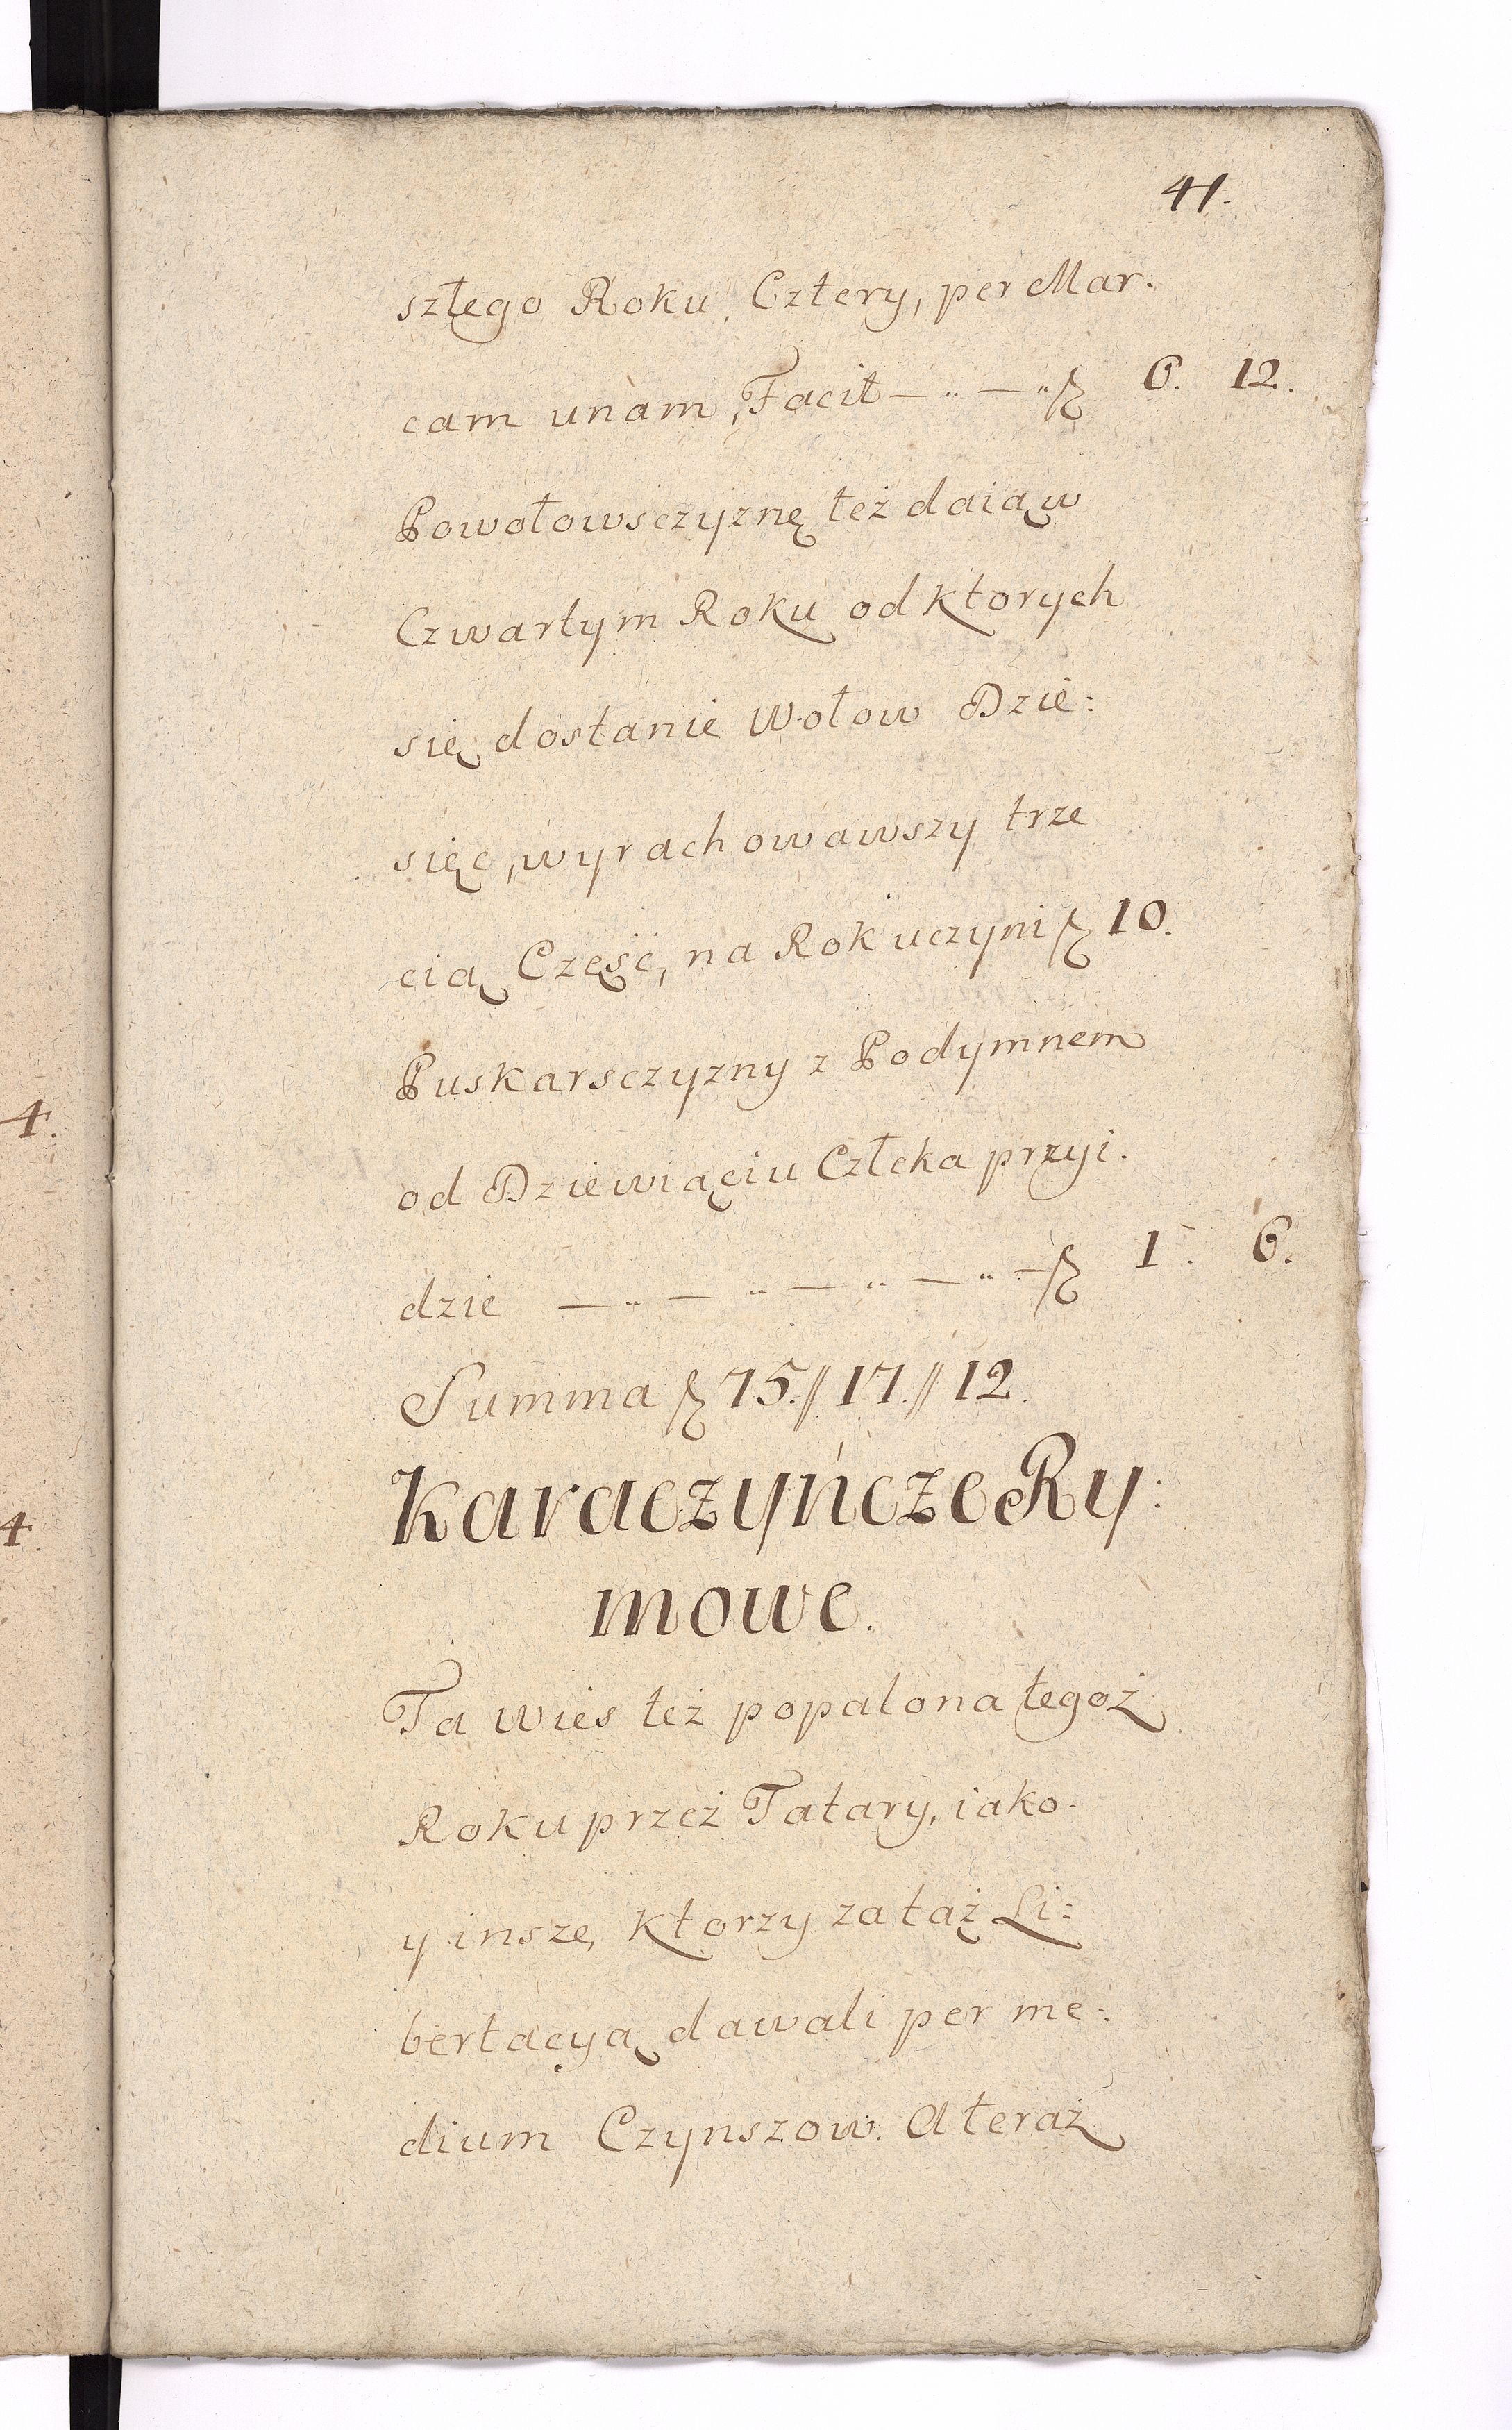 41.
szłego Roku, Cztery, per Mar.
cam unam, Facit — „ — „ 6. 12.
Powołowsczyznę też daią w
Czwartym Roku od ktorych
się dostanie Wołow Dzie:
sięc, wyrachowawszy trze
cią Częśc, na Rok uczyni 10.
Puskarsczyzny z Podymnem
od Dziewiąciu Człeka przyi.
dzie — „ — „ — „ — „ — 1. 6.
Summa 75.//17.//12.
Karaczyńcze Ry:
mowe.
Ta wies też popalona tegoż
Roku przez Tatary, iako.
y insze, ktorzy za taż Li:
bertacyą dawali per me:
dium Czynszow. A teraz
4.
4.